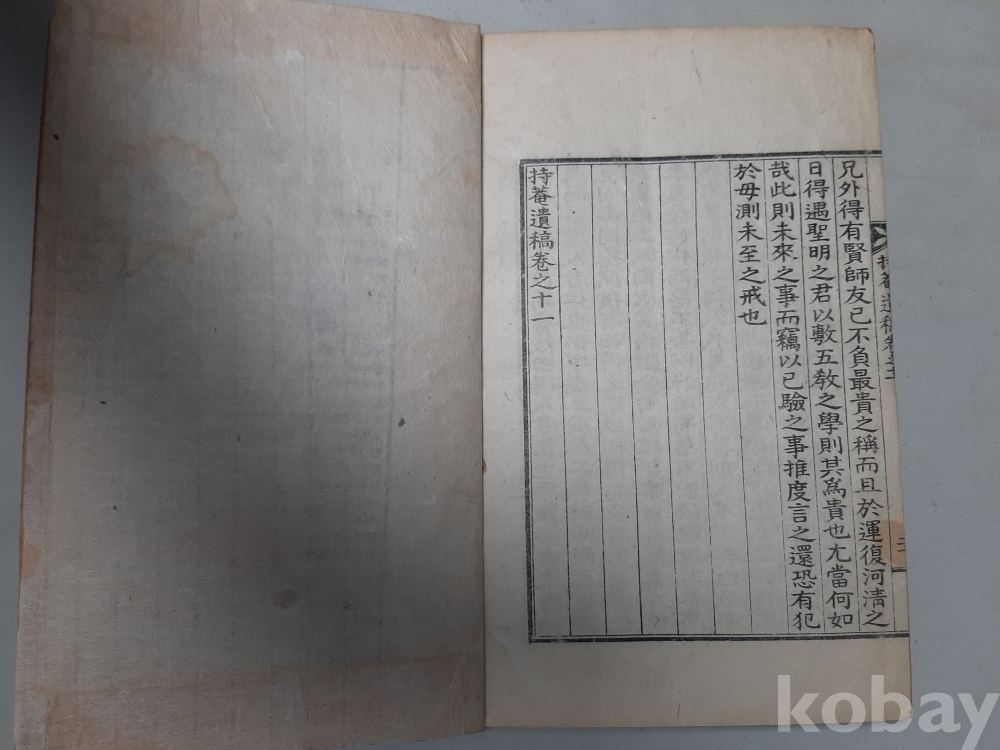 持菴遺稿卷之十一
兄外得有賢師友已不負最貴之稱而且於運復河淸之
日得遇聖明之君以敷五敎之學則其爲貴也尤當何如
哉此則未來之事而竊以已驗之事推度言之還恐有犯
於毋測未至之戒也
持菴遺稿卷之十一
kobay